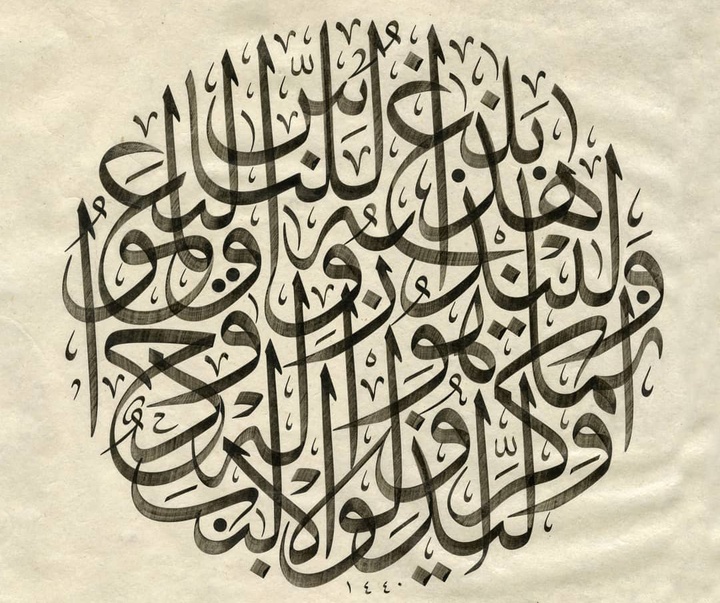 هذا بلاغ للناس ولينذروا به وليعلموا أنما هو إله واحد وليذكر أولو الألباب
١٤٤٠